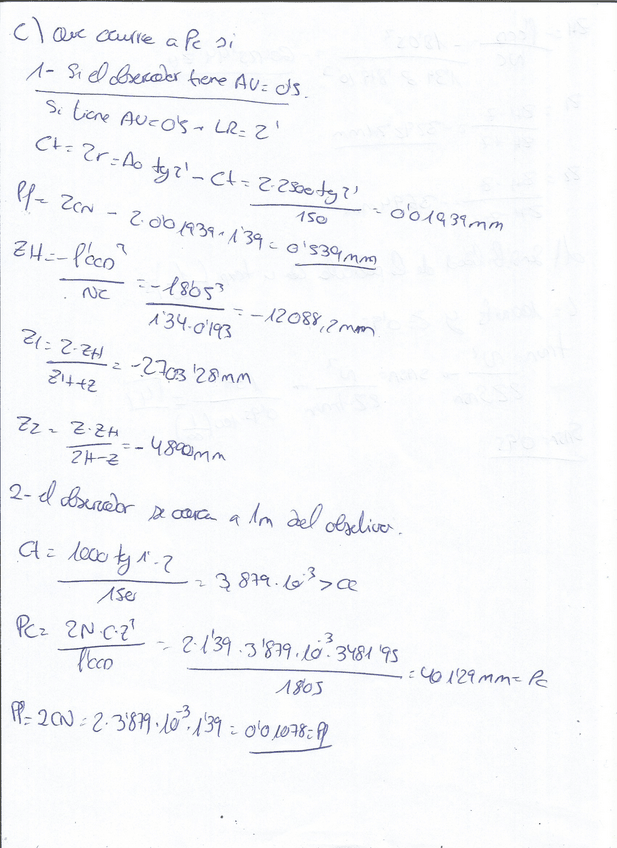 c) que ocurre a Pc si
1- Si el observador tiene AV= 0'5.
Si tiene AV=0'5 → LR= 2'
Ct= 2r= Δo tg 2' - Ct= 2·2500 tg 2' / 150 = 0'01939 mm
Pf= 2CN - 2·0'01939·1'39 = 0'539 mm
ZH= -f'cco² / NC = -18'05² / 1'34·0'193 = -12088,2 mm
Z1= Z·ZH / ZH+Z = -2703'28 mm
Z2= Z·ZH / ZH-Z = -4890 mm
2- el observador se acerca a 1m del objetivo.
Ct= 1000 tg 1'·2 / 150 = 3,879·10⁻³ > CC
Pc= 2N·C·Z' / f'cco = 2·1'39·3'879·10⁻³·3481'95 / 1805 = 40'129 mm = Pc
Pf= 2CN = 2·3'879·10⁻³·1'39 = 0'01078 = Pf